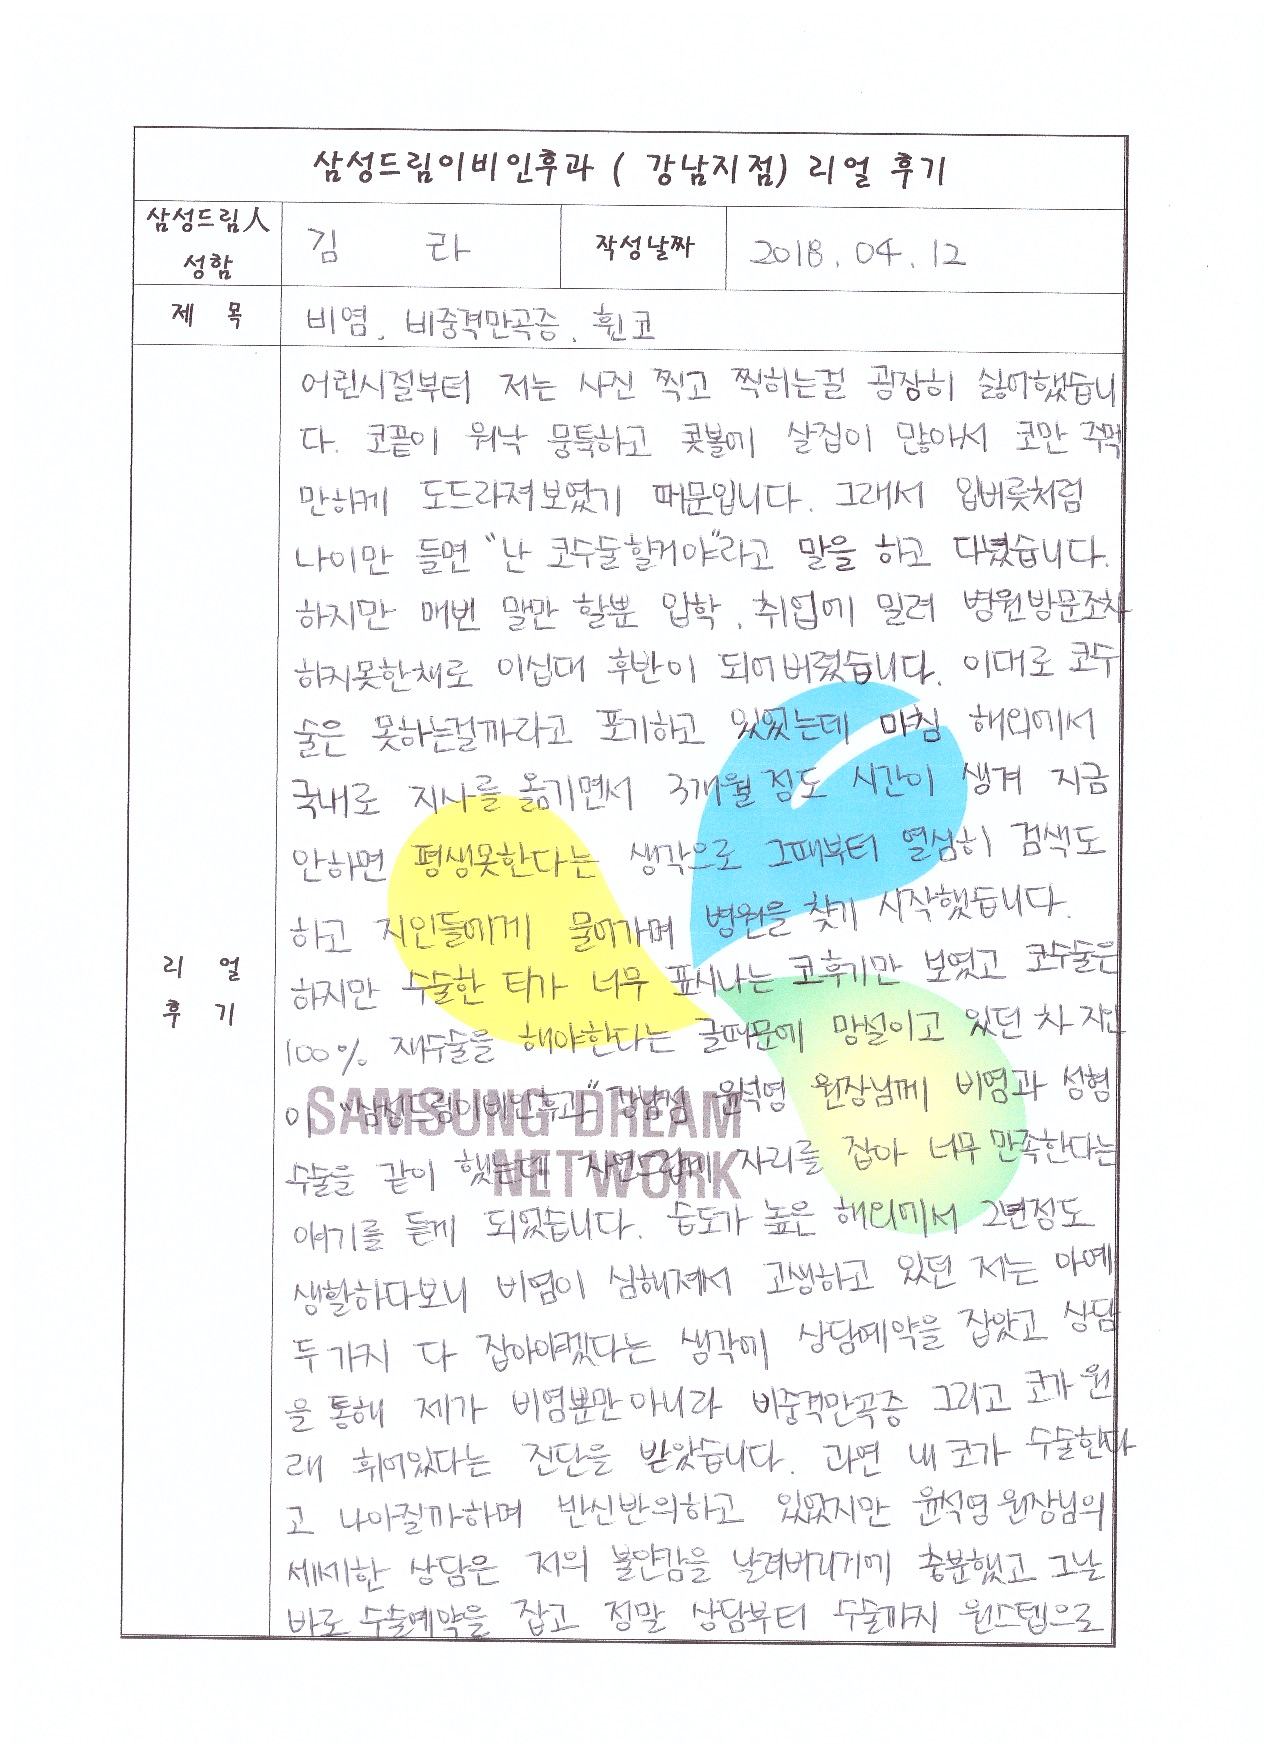 삼성드림이비인후과 ( 강남지점) 리얼 후기
삼성드림人 성함 김 라 작성날짜 2018. 04. 12
제 목 비염, 비중격만곡증, 휜코
리 얼 후 기
어린시절부터 저는 사진 찍고 찍히는걸 굉장히 싫어했습니
다. 코끝이 워낙 뭉툭하고 콧볼에 살집이 많아서 코만 주먹
만하게 도드라져보였기 때문입니다. 그래서 입버릇처럼
나이만 들면 "난 코수술할거야"라고 말을 하고 다녔습니다.
하지만 매번 말만 할뿐 입학, 취업에 밀려 병원방문조차
하지못한채로 이십대 후반이 되어버렸습니다. 이대로 코수
술은 못하는걸까라고 포기하고 있었는데 마침 해외에서
국내로 지사를 옮기면서 3개월 정도 시간이 생겨 지금
안하면 평생못한다는 생각으로 그때부터 열심히 검색도
하고 지인들에게 물어가며 병원을 찾기 시작했습니다.
하지만 수술한 티가 너무 표시나는 코후기만 보였고 코수술은
100% 재수술을 해야한다는 글때문에 망설이고 있던 차 지인
이 "삼성드림이비인후과" 강남점 윤석영 원장님께 비염과 성형
수술을 같이 했는데 자연스럽게 자리를 잡아 너무 만족한다는
얘기를 듣게 되었습니다. 습도가 높은 해외에서 2년정도
생활하다보니 비염이 심해져서 고생하고 있던 저는 아예
두가지 다 잡아야겠다는 생각에 상담예약을 잡았고 상담
을 통해 제가 비염뿐만아니라 비중격만곡증 그리고 코가 원
래 휘어있다는 진단을 받았습니다. 과연 내 코가 수술한다
고 나아질까하며 반신반의하고 있었지만 윤석영 원장님의
세세한 상담은 저의 불안감을 날려버리기에 충분했고 그날
바로 수술예약을 잡고 정말 상담부터 수술까지 원스텝으로
SAMSUNG DREAM
NETWORK